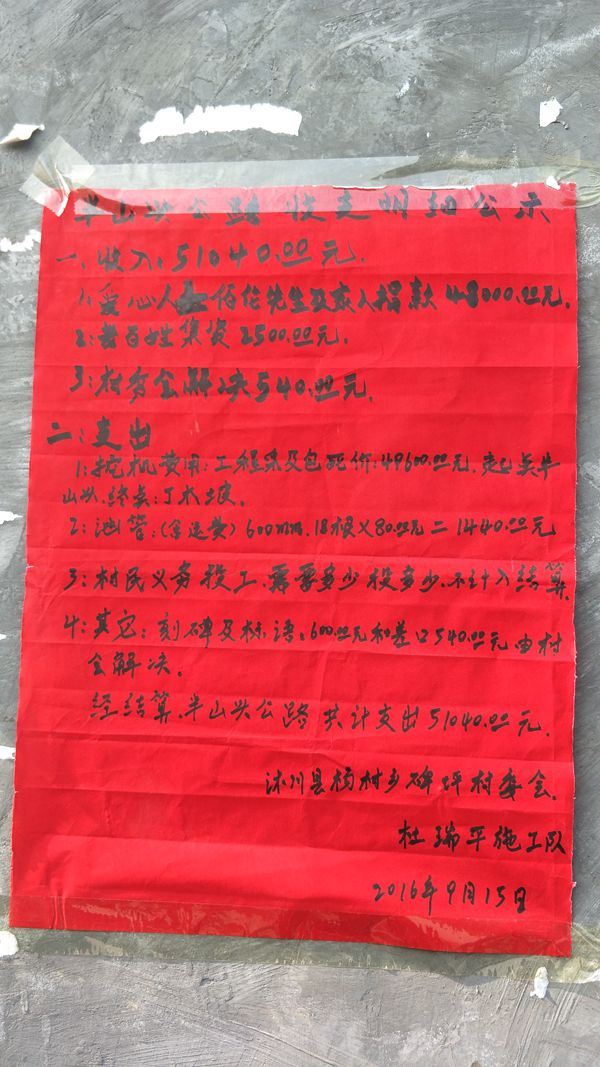 半山头公路收支明细公示
一、收入：51040.00元.
1:爱心人士佰伦先生及家人捐款48000.00元.
2:老百姓集资2500.00元.
3:村委会解决540.00元.
二:支出
1:挖机费用:工程采及包死价:49600.00元.起点半
山头.终点:丁木坡.
2:涵管:(含运费)600mm.18根×80.00元=1440.00元
3:村民义务投工、需要多少投多少.不计入结算.
4:其它:刻碑及标语:600.00元和差口540.00元由村
会解决.
经结算.半山头公路共计支出51040.00元.
沐川县杨村乡碑坪村委会.
杜瑞平施工队
2016年9月15日